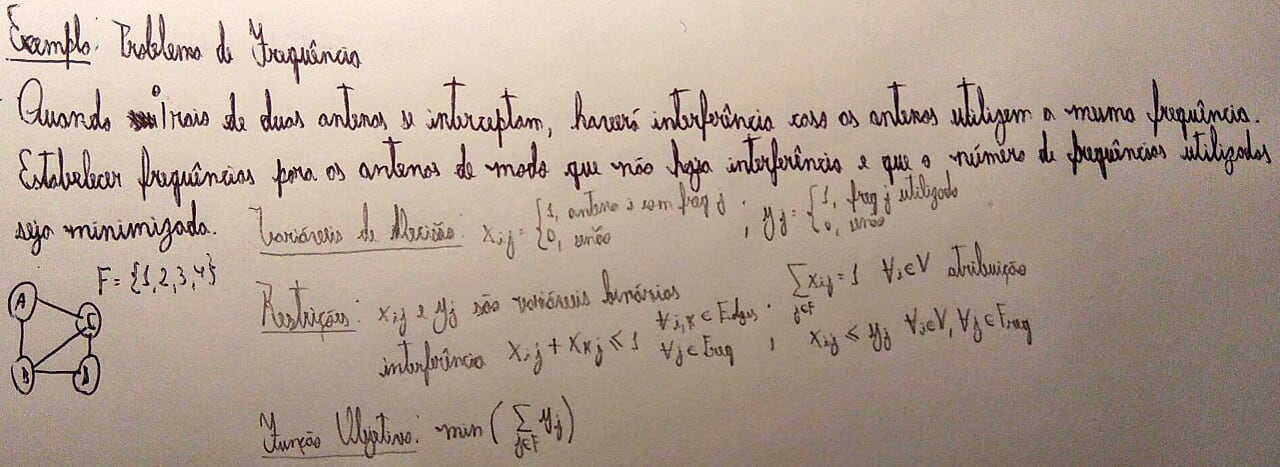 Exemplo: Problema de Frequência
Quando raios de duas antenas se interceptam, haverá interferência caso as antenas utilizem a mesma frequência.
Estabelecer frequências para as antenas de modo que não haja interferência e que o número de frequências utilizadas
seja minimizada. Variáveis de Decisão: xij = {1, antena i com freq j; 0, senão ; yj = {1, freq j utilizada; 0, senão
F = {1,2,3,4}
A
C
B
D
Restrições: xij e yj são variáveis binárias
interferência xij + xkj ≤ 1 ∀i,k ∈ Edges ∀j ∈ Freq ; ∑j∈F xij = 1 ∀i ∈ V atribuição
, xij ≤ yj ∀i ∈ V, ∀j ∈ Freq
Função Objetivo: min(∑j∈F yj)